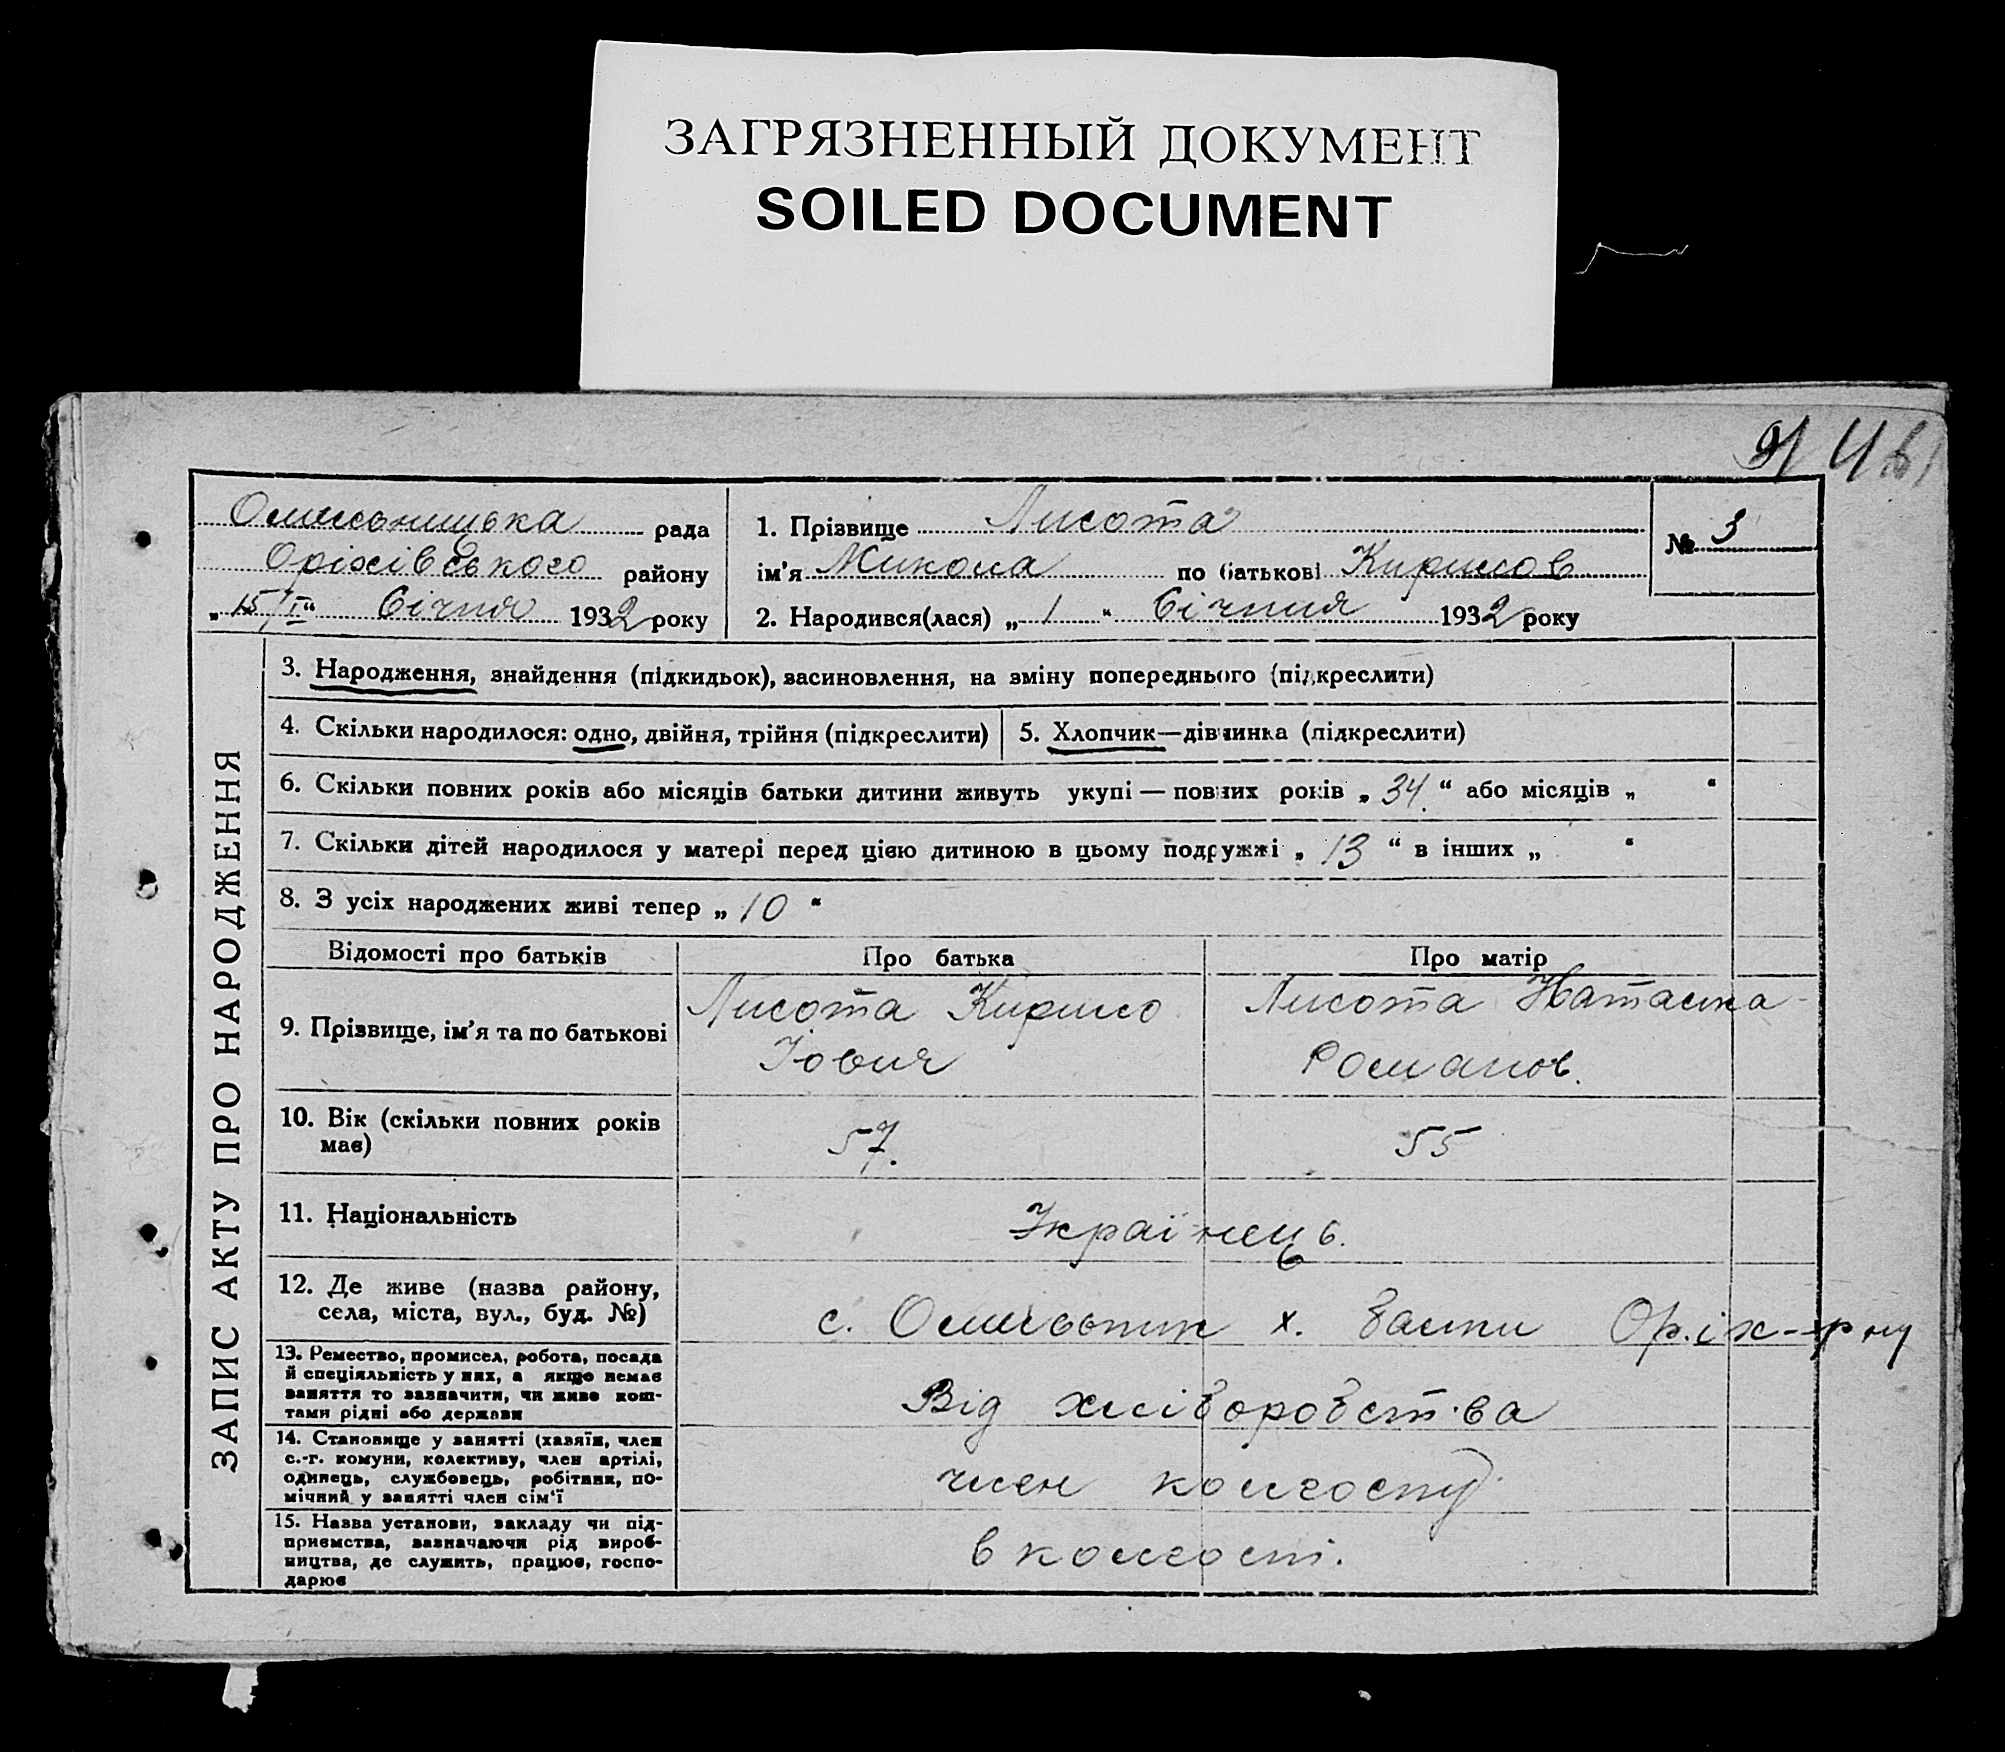 ЗАГРЯЗНЕННЫЙ ДОКУМЕНТ
SOILED DOCUMENT
рада
Оріхівського району
„15/I“ Січня 1932 року
1. Прізвище Лисота
ім’я Микола по батькові Кирилов
2. Народився(лася) „1“ Січня 1932 року
№ 3
ЗАПИС АКТУ ПРО НАРОДЖЕННЯ
3. Народження, знайдення (підкидьок), васиновлення, на зміну попереднього (підкреслити)
4. Скільки народилося: одно, двійня, трійня (підкреслити)
5. Хлопчик—дівчинка (підкреслити)
6. Скільки повних років або місяців батьки дитини живуть укупі — повних років „34“ або місяців „ “
7. Скільки дітей народилося у матері перед цією дитиною в цьому подружжі „13“ в інших „ “
8. З усіх народжених живі тепер „10“
Відомості про батьків Про батька Про матір
9. Прізвище, ім’я та по батькові
Лисота Кирило
Йович
Лисота Наташка
Романов.
10. Вік (скільки повних років
має)
57. 55
11. Національність
Українець.
12. Де живе (назва району,
села, міста, вул., буд. №)
с. х. Оріх-рну
13. Ремество, промисел, робота, посада
й спеціяльність у них, а якщо немає
ваняття то вазначити, чи живе кош-
тами рідні або держави
Від хліборобства
14. Становище у занятті (хазяїн, член
с.-г. комуни, колективу, член артілі,
одинець, службовець, робітник, по-
мічний у занятті член сім’ї
член колгоспу
15. Назва установи, закладу чи під-
приємства, вазначаючи рід вироб-
ництва, де служить, працює, госпо-
дарює
в колгоспі.